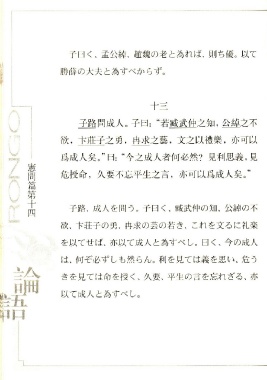 子曰く、孟公綽、趙魏の老と為れば、則ち優。以て
勝薛の大夫と為すべからず。
十三
子路問成人。子曰:“若臧武仲之知，公綽之不
欲，卞莊子之勇，冉求之藝，文之以禮樂，亦可以
爲成人矣。”曰:“今之成人者何必然？見利思義，見
危授命，久要不忘平生之言，亦可以爲成人矣。”
子路、成人を問う。子曰く、臧武仲の知、公綽の不
欲、卞莊子の勇、冉求の芸の若き、これを文るに礼楽
を以てせば、亦以て成人と為すべし。曰く、今の成人
は、何ぞ必ずしも然らん。利を見ては義を思い、危う
きを見ては命を授く、久要、平生の言を忘れざる、亦
以て成人と為すべし。
RONGO
憲問篇第十四
論語